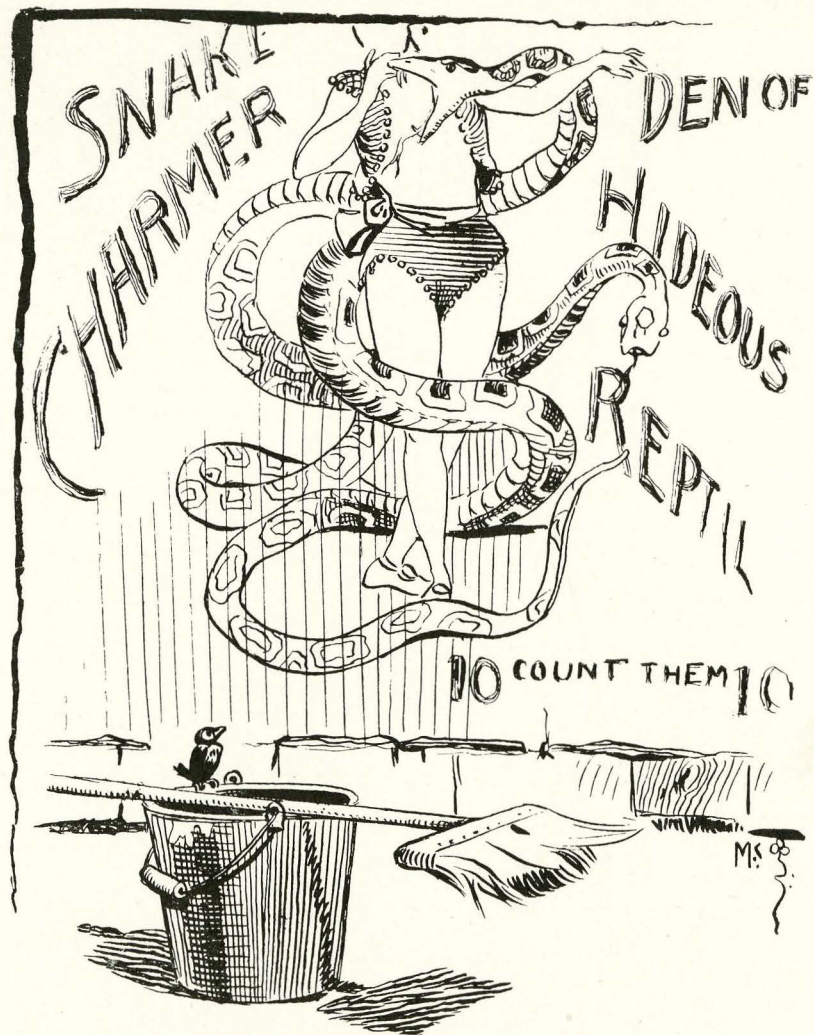 SNAKE
CHARMER
DEN OF
HIDEOUS
REPTIL
10 COUNT THEM 10
Mc